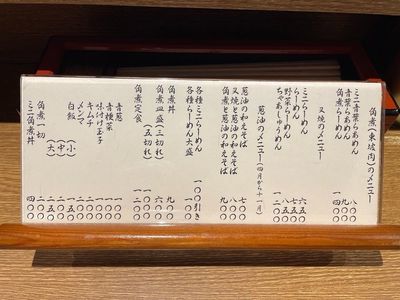 佃煮(東坡肉)のメニュー
佃煮らあめん 一四〇〇
青葉らあめん 八〇〇
ミニ青葉らあめん
又焼のメニュー
ちゃあしゅうめん 一二〇〇
野菜らーめん 八五〇
らーめん 七五〇
ミニらーめん 六五〇
葱油のメニュー(四月から十一月)
佃煮と葱油の和えそば
又焼と葱油の和えそば
葱油の和えそば 七〇〇
各種らーめん大盛 一〇〇
各種ミニらーめん 一〇〇引き
佃煮丼 九〇〇
佃煮皿盛(三切れ) 六〇〇
(五切れ) 一〇〇〇
佃煮定食 一二〇〇
青葱 一〇〇
青梗菜 一〇〇
味付け玉子 一〇〇
キムチ 一〇〇
メンマ
白飯(小)
(中)
(大)
佃煮一切 二〇〇
ミニ佃煮丼 四〇〇